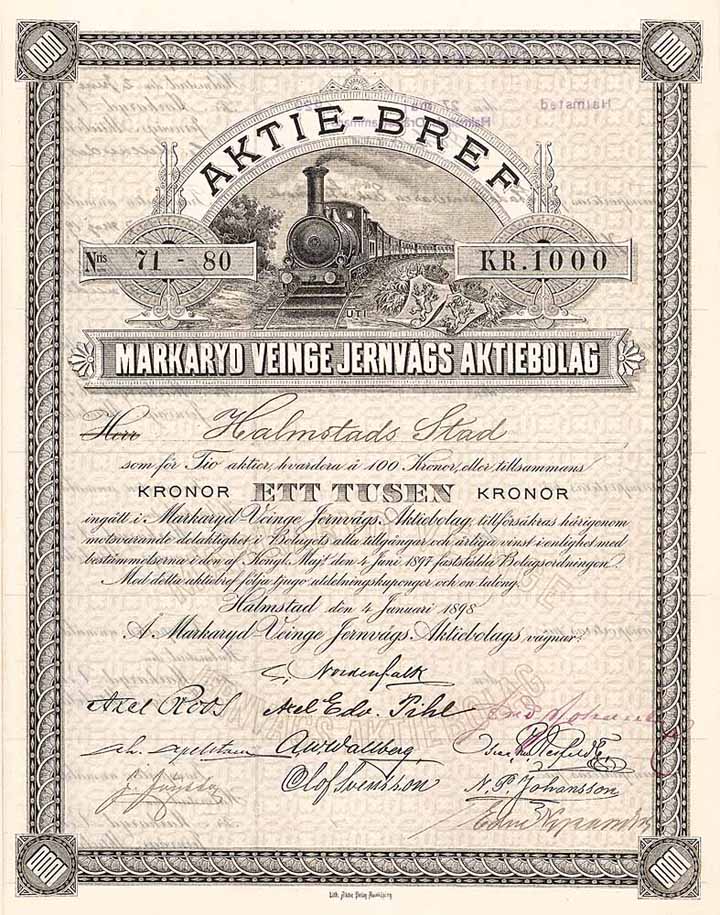 1000
1000
AKTIE-BREF
Nris 71 - 80
KR. 1000
MARKARYD VEINGE JERNVÄGS AKTIEBOLAG
Herr Halmstads Stad
som för Tio aktier, hvardera à 100 Kronor, eller tillsammans
KRONOR ETT TUSEN KRONOR
ingått i Markaryd-Veinge Jernvägs Aktiebolag, tillförsäkras härigenom
motsvarande delaktighet i Bolagets alla tillgångar och årliga vinst i enlighet med
bestämmelserna i den af Kongl. Maj:t den 4 Juni 1897 fastställda Bolagsordningen.
Med detta aktiebref följa tjugo utdelningskuponger och en talong.
Halmstad den 4 Januari 1898
A. Markaryd-Veinge Jernvägs Aktiebolags vägnar:
C. Nordenfalk
Axel Roos Axel Edv. Pihl
AurWallberg
Olof Svensson N. P. Johansson
1000
1000